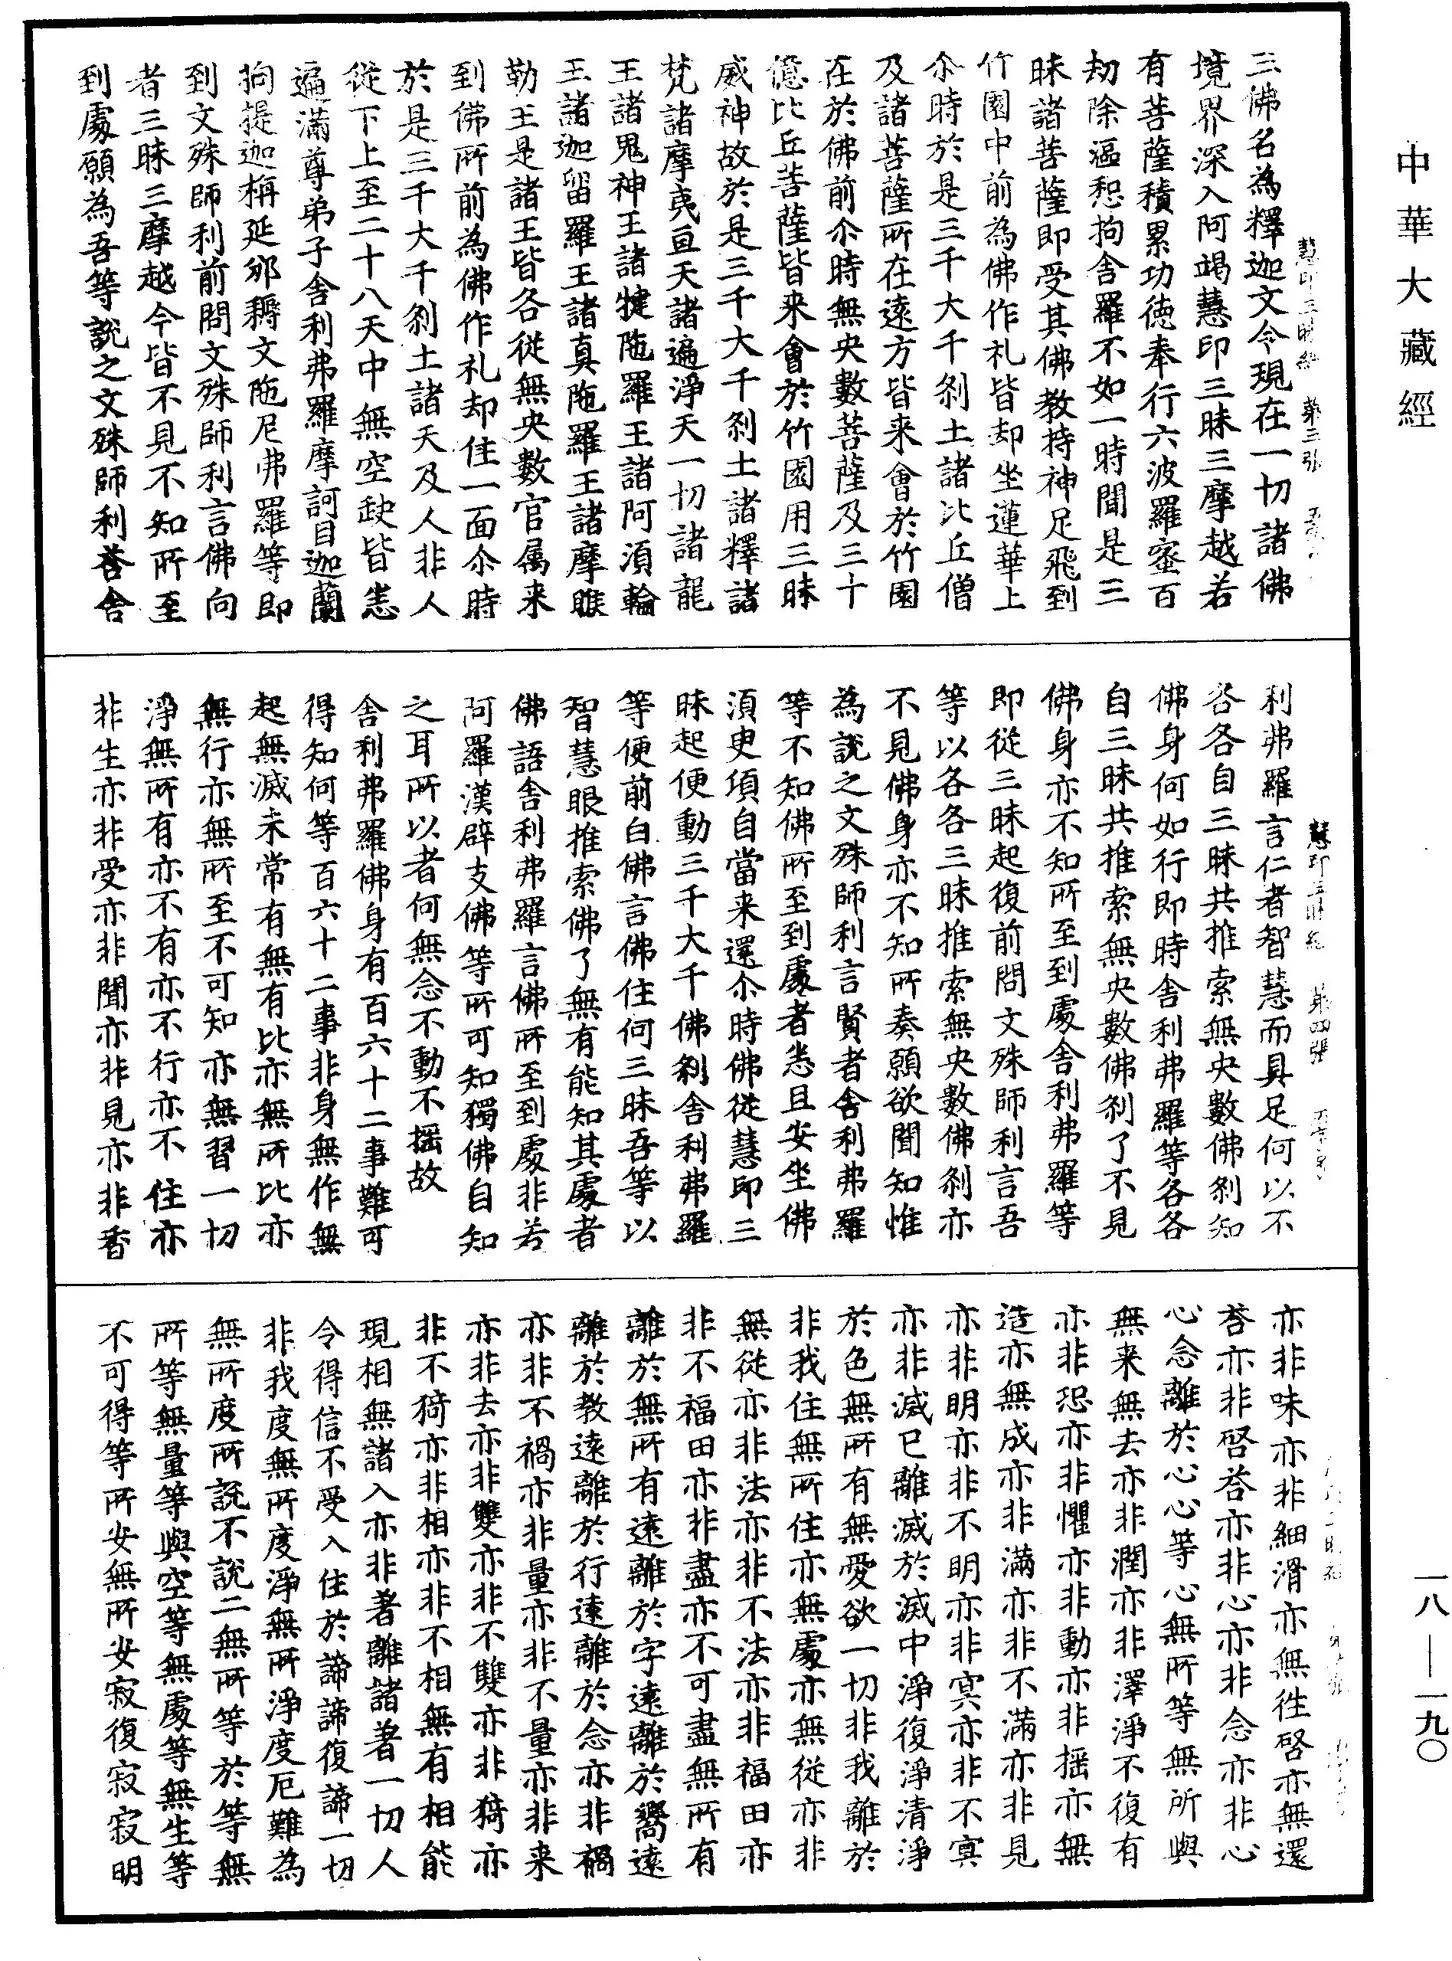 中華大藏經
慧印三昧經 第三張
三佛名為釋迦文今現在一切諸佛
境界深入阿竭慧印三昧三摩越若
有菩薩積累功德奉行六波羅蜜百
劫除漚惒拘舍羅不如一時聞是三
昧諸菩薩即受其佛教持神足飛到
竹園中前為佛作礼皆却坐蓮華上
尒時於是三千大千刹土諸比丘僧
及諸菩薩所在遠方皆来會於竹園
在於佛前尒時無央數菩薩及三十
億比丘菩薩皆来會於竹園用三昧
威神故於是三千大千刹土諸釋諸
梵諸摩夷亘天諸遍淨天一切諸龍
王諸鬼神王諸揵陁羅王諸阿須輪
王諸迦留羅王諸真陁羅王諸摩睺
勒王是諸王皆各從無央數官属来
到佛所前為佛作礼却住一面尒時
於是三千大千刹土諸天及人非人
從下上至二十八天中無空缺皆悉
遍滿尊弟子舍利弗羅摩訶目迦蘭
拘提迦栴延邠耨文陁尼弗羅等即
到文殊師利前問文殊師利言佛向
者三昧三摩越今皆不見不知所至
到處願為吾等說之文殊師利荅舍
慧印三昧經 第四張
利弗羅言仁者智慧而具足何以不
各各自三昧共推索無央數佛刹知
佛身何如行即時舍利弗羅等各各
自三昧共推索無央數佛刹了不見
佛身亦不知所至到處舍利弗羅等
即從三昧起復前問文殊師利言吾
等以各各三昧推索無央數佛刹亦
不見佛身亦不知所奏願欲聞知惟
為說之文殊師利言賢者舍利弗羅
等不知佛所至到處者悉且安坐佛
須臾項自當来還尒時佛從慧印三
昧起便動三千大千佛刹舍利弗羅
等便前白佛言佛住何三昧吾等以
智慧眼推索佛了無有能知其處者
佛語舍利弗羅言佛所至到處非若
阿羅漢辟支佛等所可知獨佛自知
之耳所以者何無念不動不摇故
舍利弗羅佛身有百六十二事難可
得知何等百六十二事非身無作無
起無滅未常有無有比亦無所比亦
無行亦無所至不可知亦無習一切
淨無所有亦不有亦不行亦不住亦
非生亦非受亦非聞亦非見亦非香
亦非味亦非細滑亦無徃啓亦無還
荅亦非啓荅亦非心亦非念亦非心
心念離於心心等心無所等無所與
無来無去亦非潤亦非澤淨不復有
亦非恐亦非懼亦非動亦非摇亦無
造亦無成亦非滿亦非不滿亦非見
亦非明亦非不明亦非冥亦非不冥
亦非滅已離滅於滅中淨復淨清淨
於色無所有無愛欲一切非我離於
非我住無所住亦無處亦無從亦非
無從亦非法亦非不法亦非福田亦
非不福田亦非盡亦不可盡無所有
離於無所有遠離於字遠離於嚮遠
離於教遠離於行遠離於念亦非禍
亦非不禍亦非量亦非不量亦非来
亦非去亦非雙亦非不雙亦非猗亦
非不猗亦非相亦非不相無有相能
現相無諸入亦非著離諸著一切人
令得信不受入住於諦諦復諦一切
非我度無所度淨無所淨度厄難為
無所度所說不說二無所等於等無
所等無量等與空等無處等無生等
不可得等所安無所安寂復寂寂明
一八—一九〇